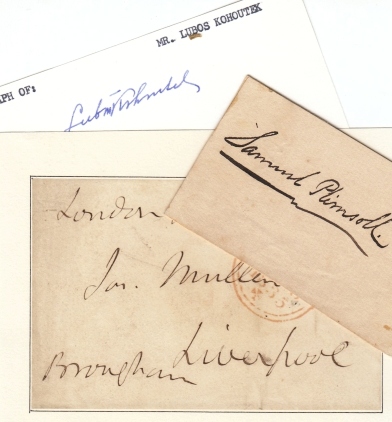 MR. LUBOS KOHOUTEK
APH OF:
Luboš Kohoutek
Samuel Plimsoll.
London
Jas. Mullen
Liverpool
Brougham